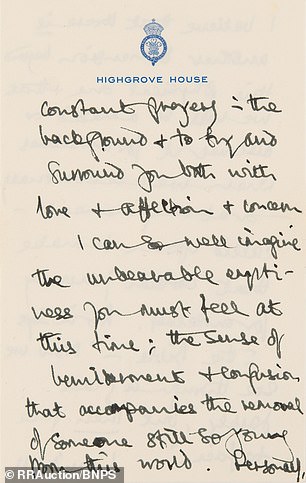 HIGHGROVE HOUSE
constant prayers in the
background & to try and
surround you both with
love & affection & concern
I can so well imagine
the unbearable empti-
ness you must feel at
this time; the sense of
bewilderment & confusion
that accompanies the removal
of someone still so young
from this world. Personally,
©RRAuction/BNPS